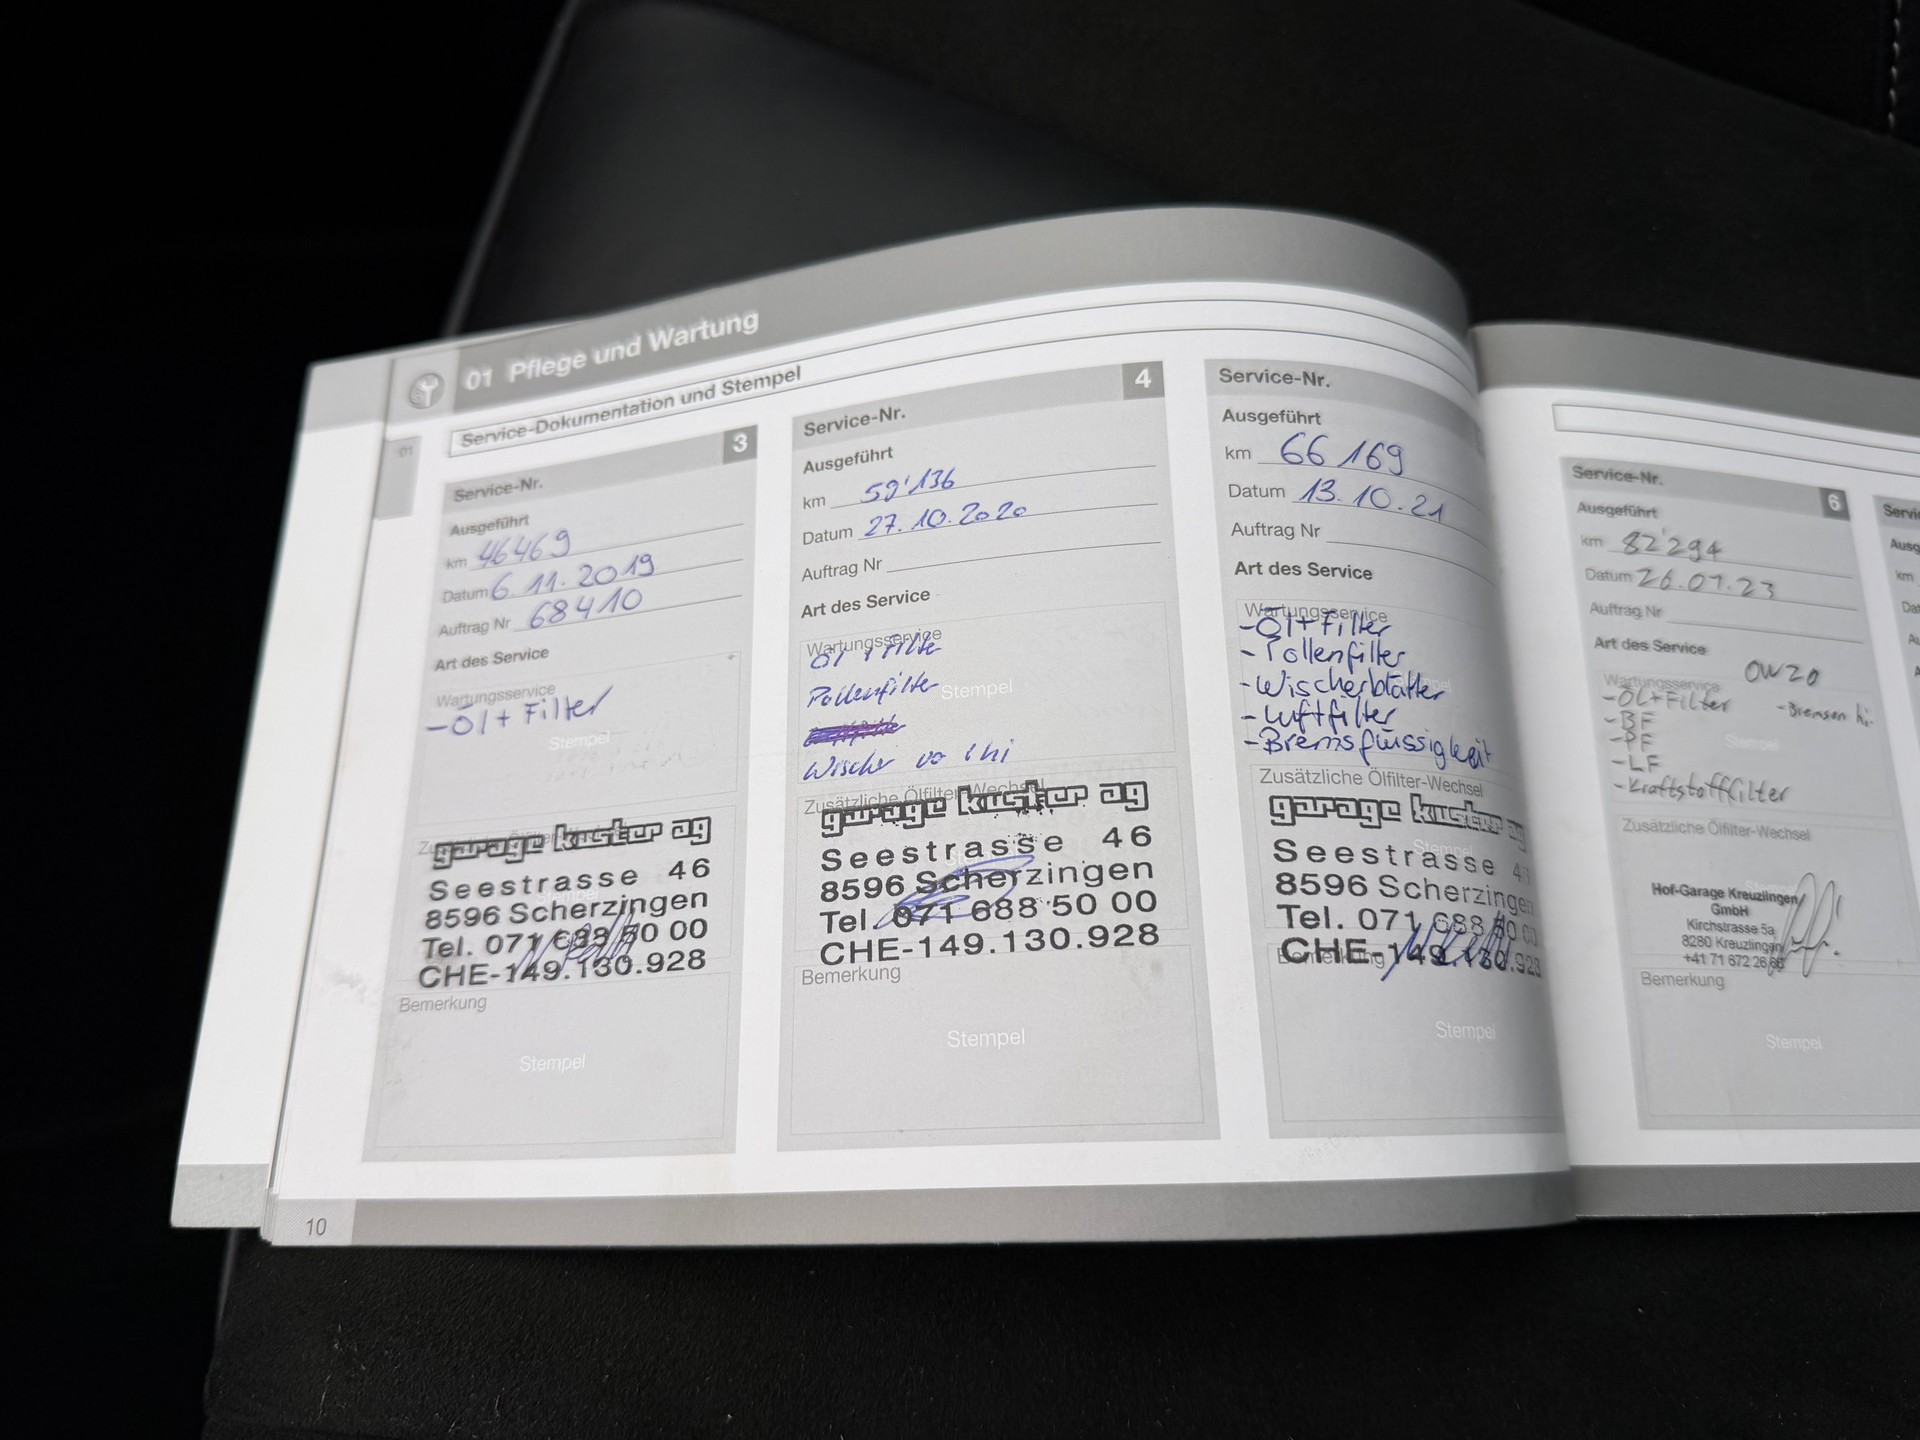 01 Pflege und Wartung
Service-Dokumentation und Stempel
01
Service-Nr. 3
Ausgeführt
km 46469
Datum 6.11.2019
Auftrag Nr 68410
Art des Service
Wartungsservice
- Öl + Filter
Stempel
garage kuster ag
Seestrasse 46
8596 Scherzingen
Tel. 071 688 50 00
CHE-149.130.928
Bemerkung
Stempel
Service-Nr. 4
Ausgeführt
km 59'136
Datum 27.10.2020
Auftrag Nr
Art des Service
Wartungsservice
Öl + Filter
Pollenfilter
Stempel
Wischer vo + hi
Zusätzliche Ölfilter-Wechsel
garage kuster ag
Seestrasse 46
8596 Scherzingen
Tel. 071 688 50 00
CHE-149.130.928
Bemerkung
Stempel
Service-Nr.
Ausgeführt
km 66169
Datum 13.10.21
Auftrag Nr
Art des Service
Wartungsservice
- Öl + Filter
- Pollenfilter
- Wischerblätter
- Luftfilter
- Bremsflüssigkeit
Zusätzliche Ölfilter-Wechsel
garage kuster ag
Stempel
Seestrasse 46
8596 Scherzingen
Tel. 071 688 50 00
CHE-149.130.928
Bemerkung
Stempel
10
Service-Nr. 6
Ausgeführt
km 82'294
Datum 26.01.23
Auftrag Nr
Art des Service
0W20
Wartungsservice
- Öl+Filter - Bremsen hi.
- BF
- PF
- LF
- Kraftstofffilter
Stempel
Zusätzliche Ölfilter-Wechsel
Hof-Garage Kreuzlingen
GmbH
Kirchstrasse 5a
8280 Kreuzlingen
+41 71 672 26 66
Bemerkung
Stempel